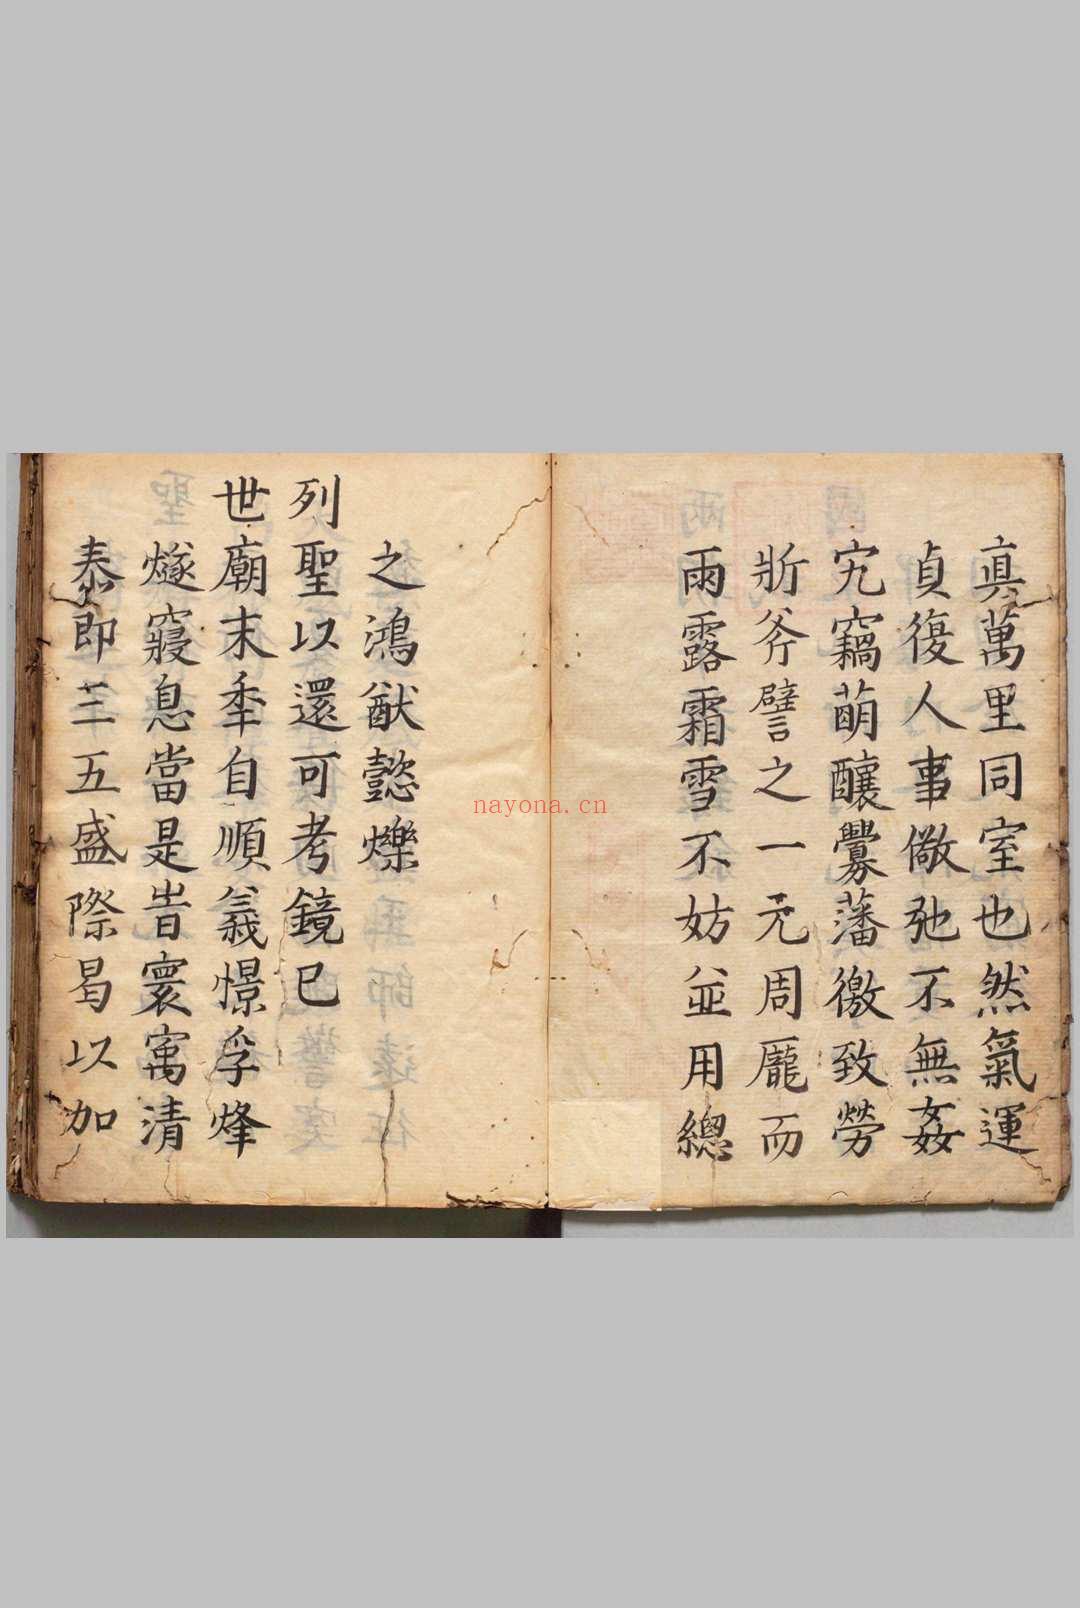 真萬里同室也然氣運
貞復人事儆弛不無姦
宄竊萌釀釁藩徼致勞
斨斧譬之一元周龐而
雨露霜雪不妨並用總
之鴻猷懿爍
列聖以還可考鏡已
世廟末秊自順義憬孚烽
燧寢息當是旹寰㝢清
泰即三五盛際曷以加
nayona.cn